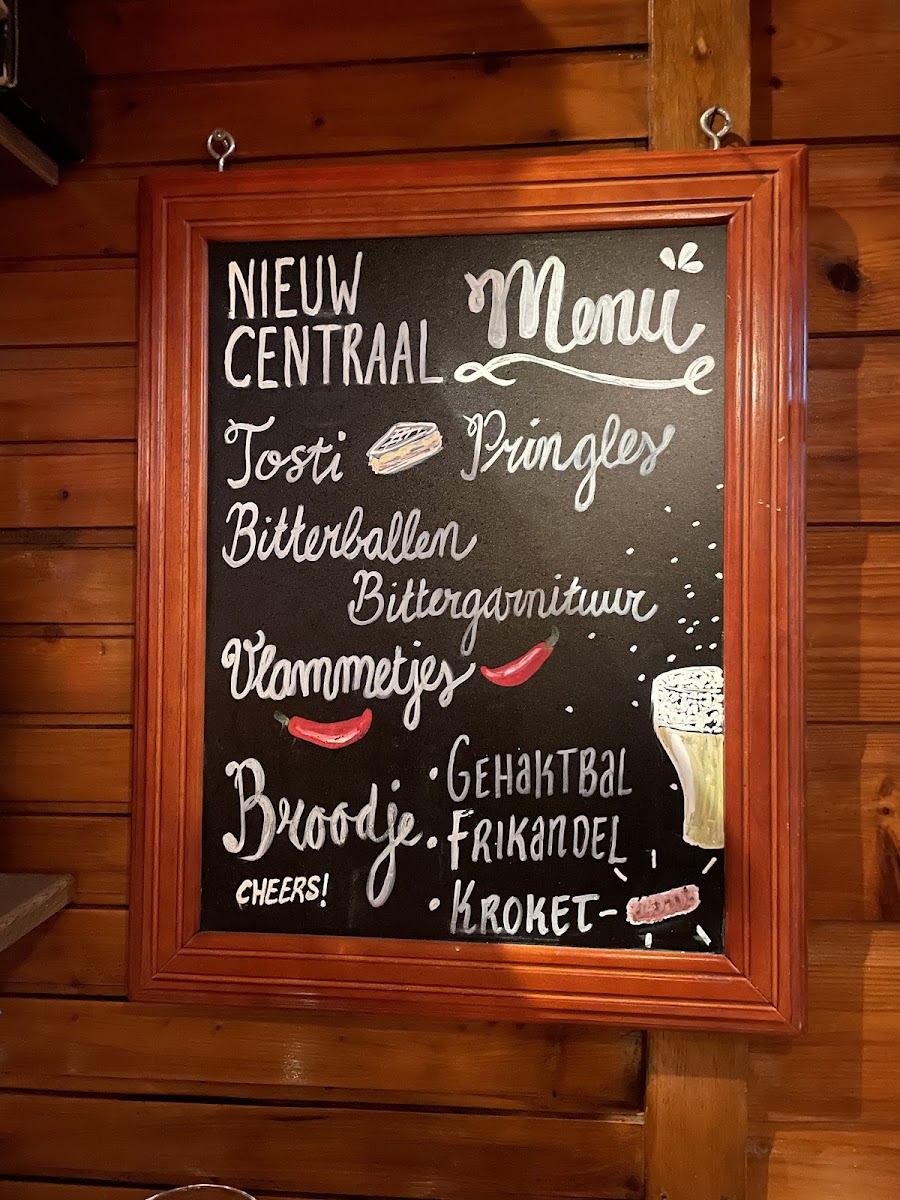 NIEUW
CENTRAAL
Menu
Tosti
Pringles
Bitterballen
Bittergarnituur
Vlammetjes
Broodje
• GEHAKTBAL
• FRIKANDEL
• KROKET-
CHEERS!